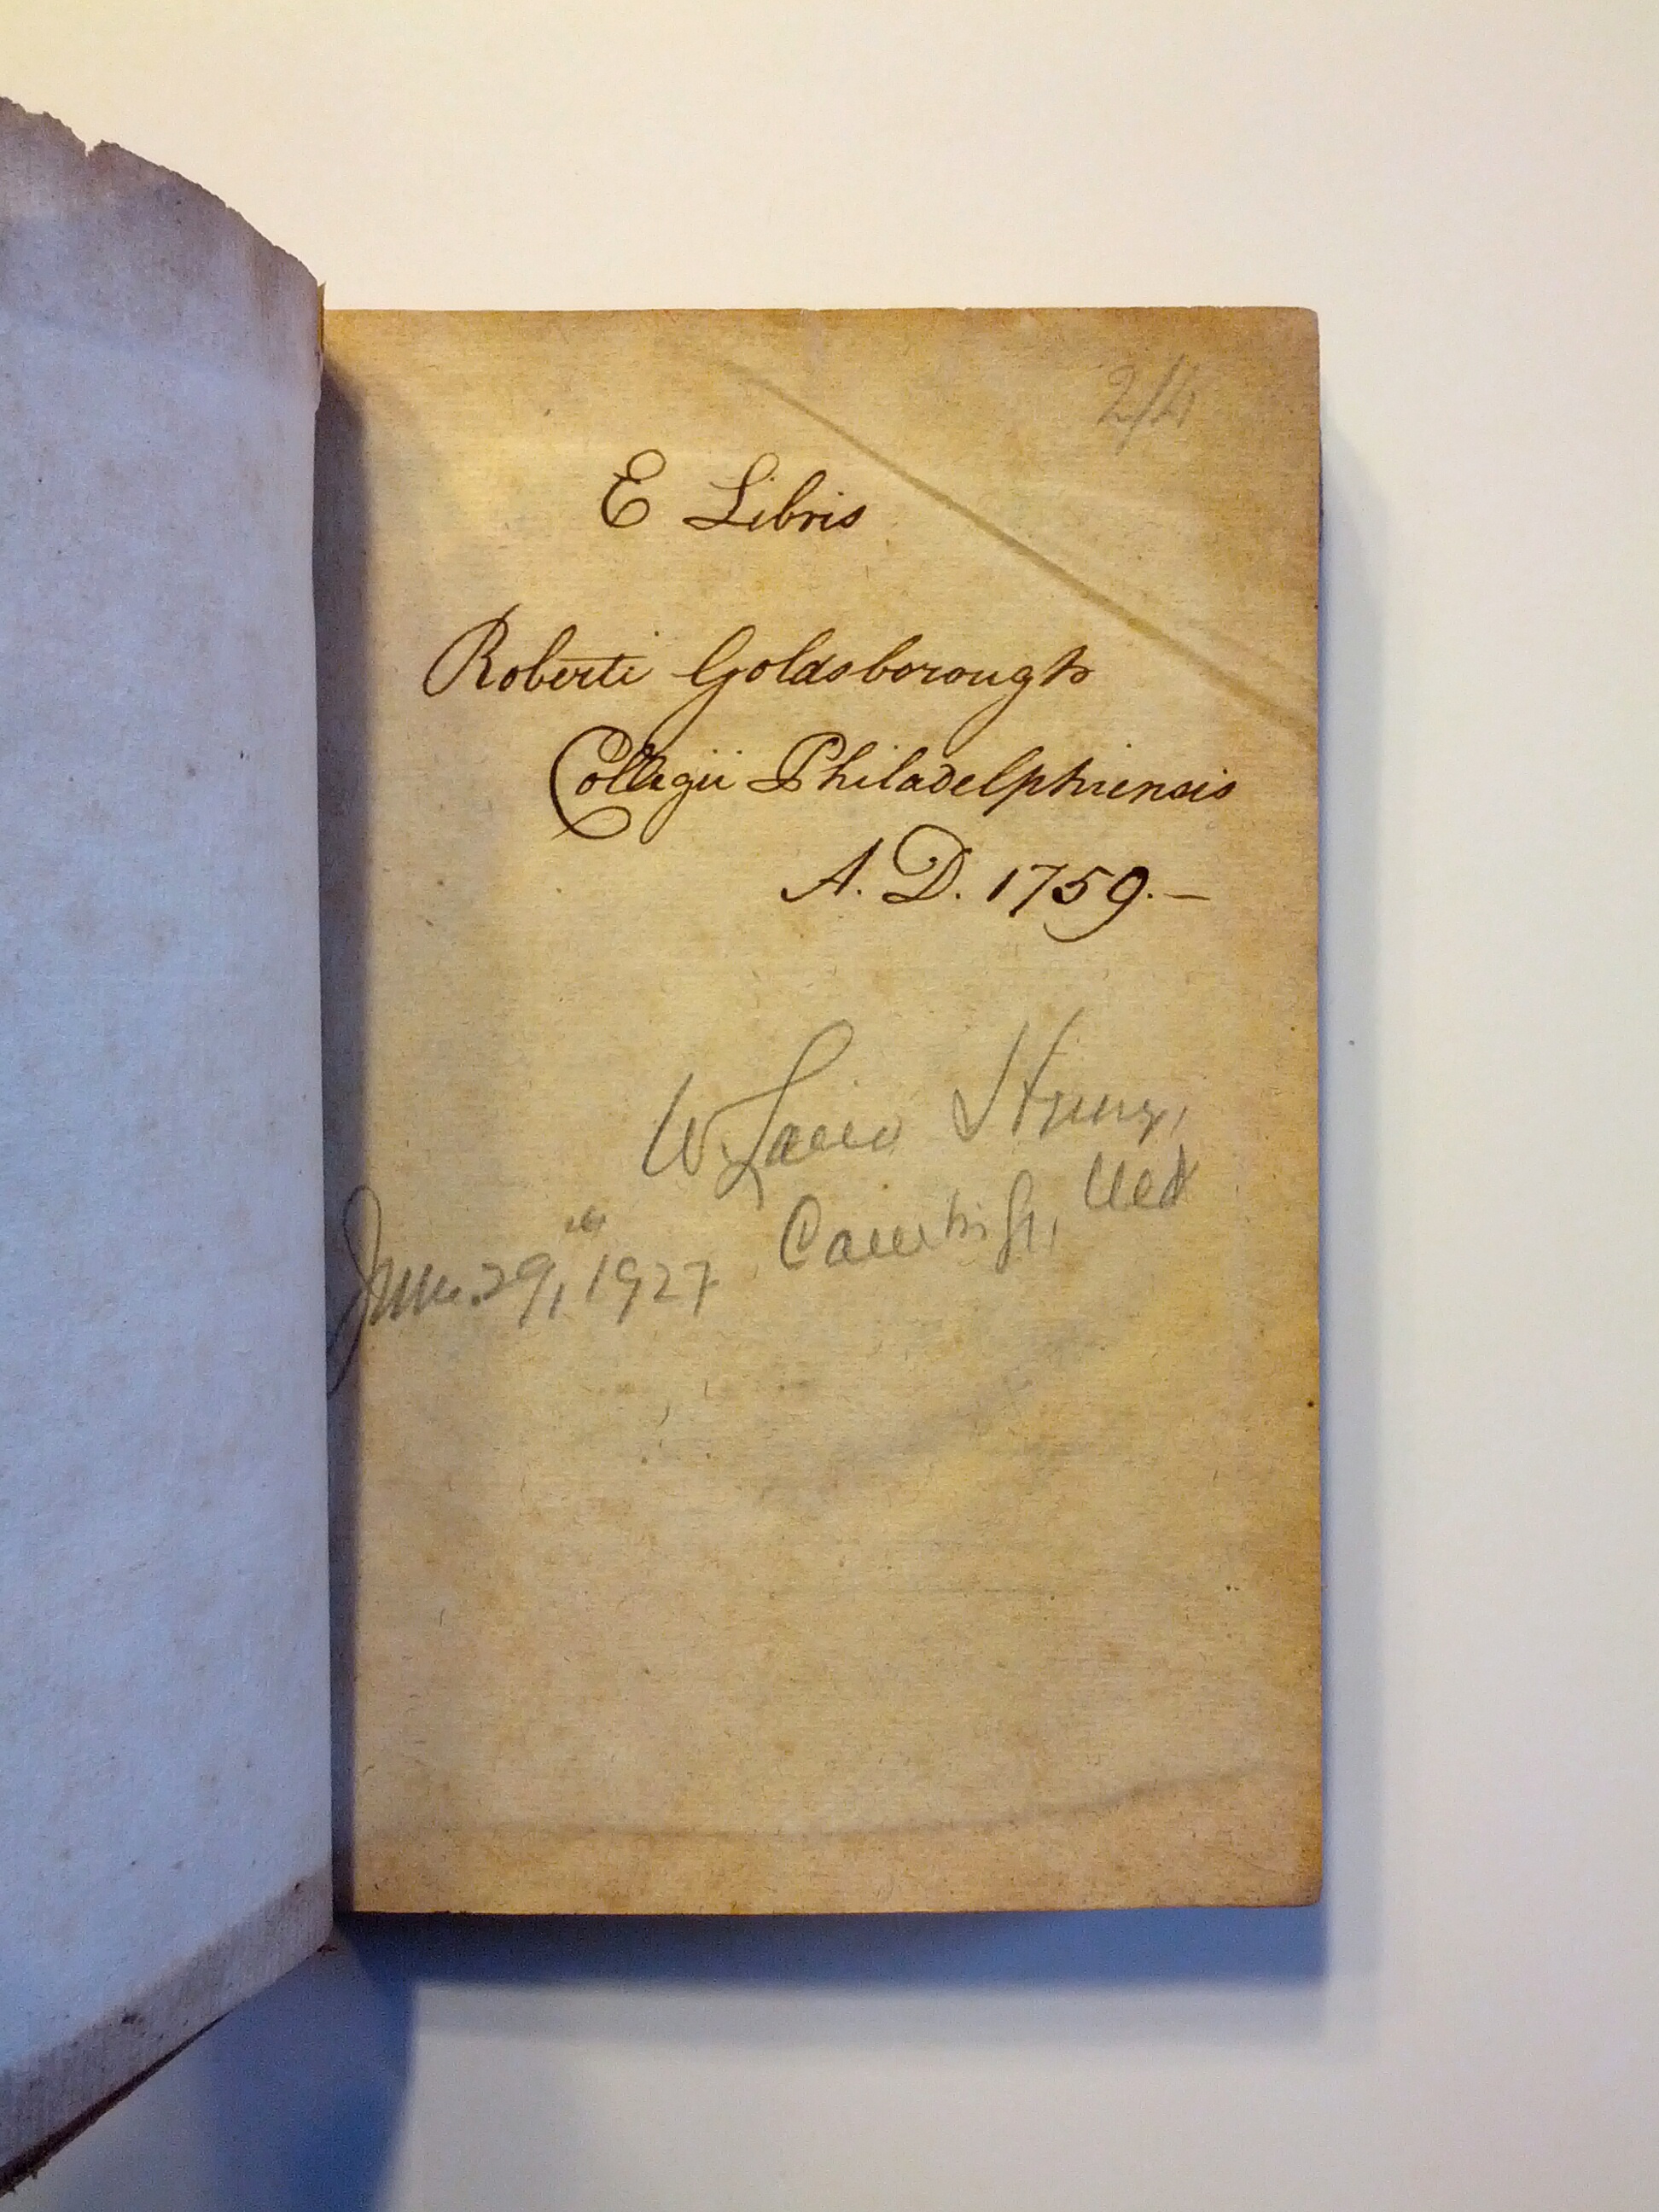 2/4
E Libris
Roberti Goldsborough
Collegii Philadelphiensis
A. D. 1759.—
W. Laird Henry,
Cambridge, Md
June 29, 1927